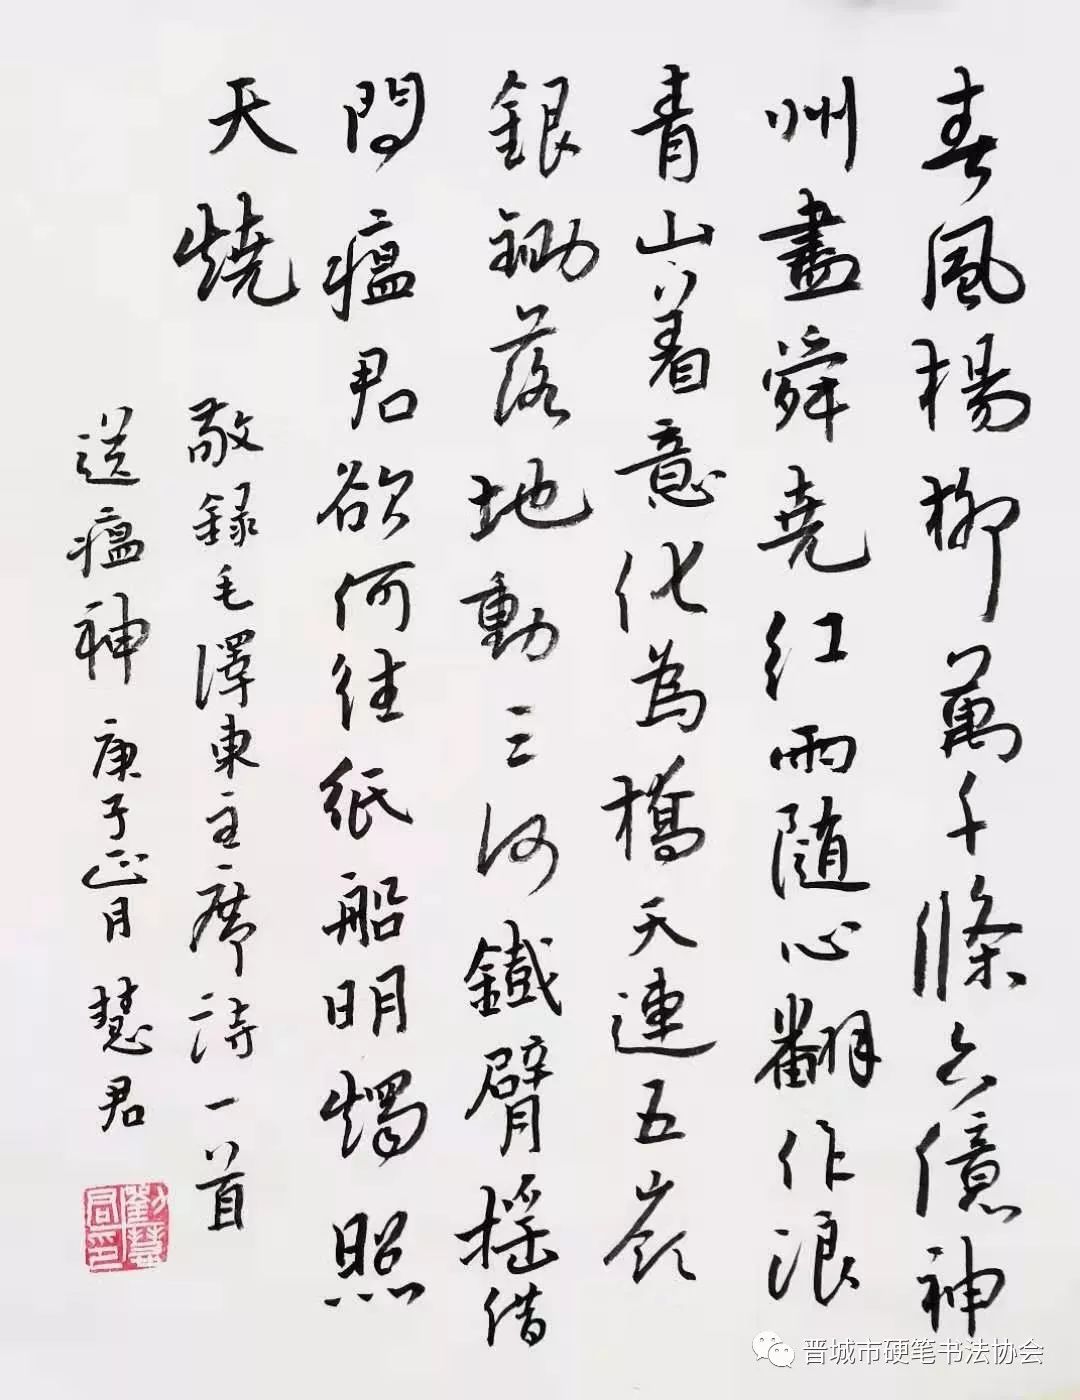 春風楊柳萬千條六億神
州盡舜堯紅雨隨心翻作浪
青山着意化為橋天連五嶺
銀鋤落地動三河鐵臂搖借
問瘟君欲何往紙船明燭照
天燒
敬録毛澤東主席詩一首
送瘟神 庚子正月 慧君
劉慧君印
晋城市硬笔书法协会